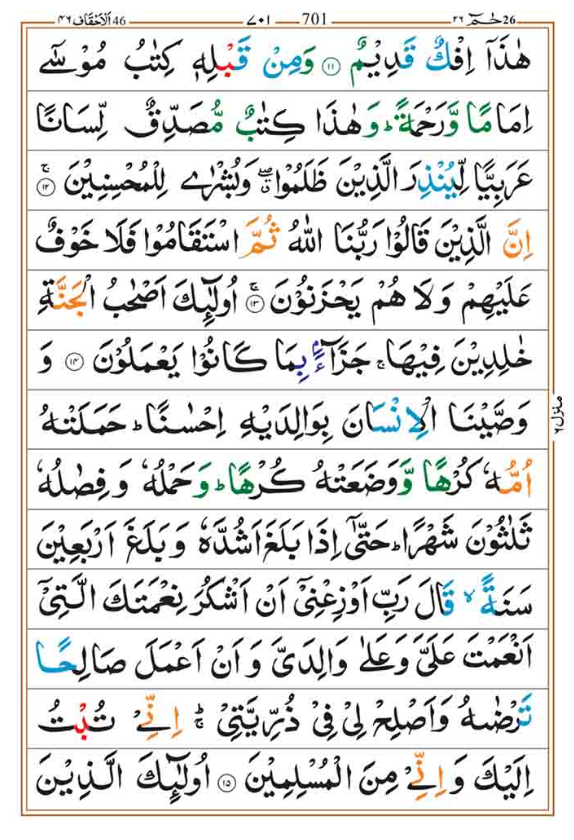 46 اَلْاَحْقَاف ٤٦ — 701 — ٧٠١ — 26 حٰمٓ ٢٦
هٰذَاۤ اِفْكٌ قَدِیْمٌ ۝۱۱ وَمِنْ قَبْلِهٖ كِتٰبُ مُوْسٰۤی
اِمَامًا وَّرَحْمَةً ؕ وَهٰذَا كِتٰبٌ مُّصَدِّقٌ لِّسَانًا
عَرَبِیًّا لِّیُنْذِرَ الَّذِیْنَ ظَلَمُوْا ۖۗ وَبُشْرٰی لِلْمُحْسِنِیْنَ ۝۱۲ۚ
اِنَّ الَّذِیْنَ قَالُوْا رَبُّنَا اللّٰهُ ثُمَّ اسْتَقَامُوْا فَلَا خَوْفٌ
عَلَیْهِمْ وَلَا هُمْ یَحْزَنُوْنَ ۝۱۳ۚ اُولٰٓئِكَ اَصْحٰبُ الْجَنَّةِ
خٰلِدِیْنَ فِیْهَا ۚ جَزَآءًۢ بِمَا كَانُوْا یَعْمَلُوْنَ ۝۱۴ وَ
وَصَّیْنَا الْاِنْسَانَ بِوَالِدَیْهِ اِحْسٰنًا ؕ حَمَلَتْهُ
اُمُّهٗ كُرْهًا وَّوَضَعَتْهُ كُرْهًا ؕ وَحَمْلُهٗ وَفِصٰلُهٗ
ثَلٰثُوْنَ شَهْرًا ؕ حَتّٰۤی اِذَا بَلَغَ اَشُدَّهٗ وَبَلَغَ اَرْبَعِیْنَ
سَنَةً ۙ قَالَ رَبِّ اَوْزِعْنِیْۤ اَنْ اَشْكُرَ نِعْمَتَكَ الَّتِیْۤ
اَنْعَمْتَ عَلَیَّ وَعَلٰی وَالِدَیَّ وَاَنْ اَعْمَلَ صَالِحًا
تَرْضٰىهُ وَاَصْلِحْ لِیْ فِیْ ذُرِّیَّتِیْ ؕۚ اِنِّیْ تُبْتُ
اِلَیْكَ وَاِنِّیْ مِنَ الْمُسْلِمِیْنَ ۝۱۵ اُولٰٓئِكَ الَّذِیْنَ
منزل ٦